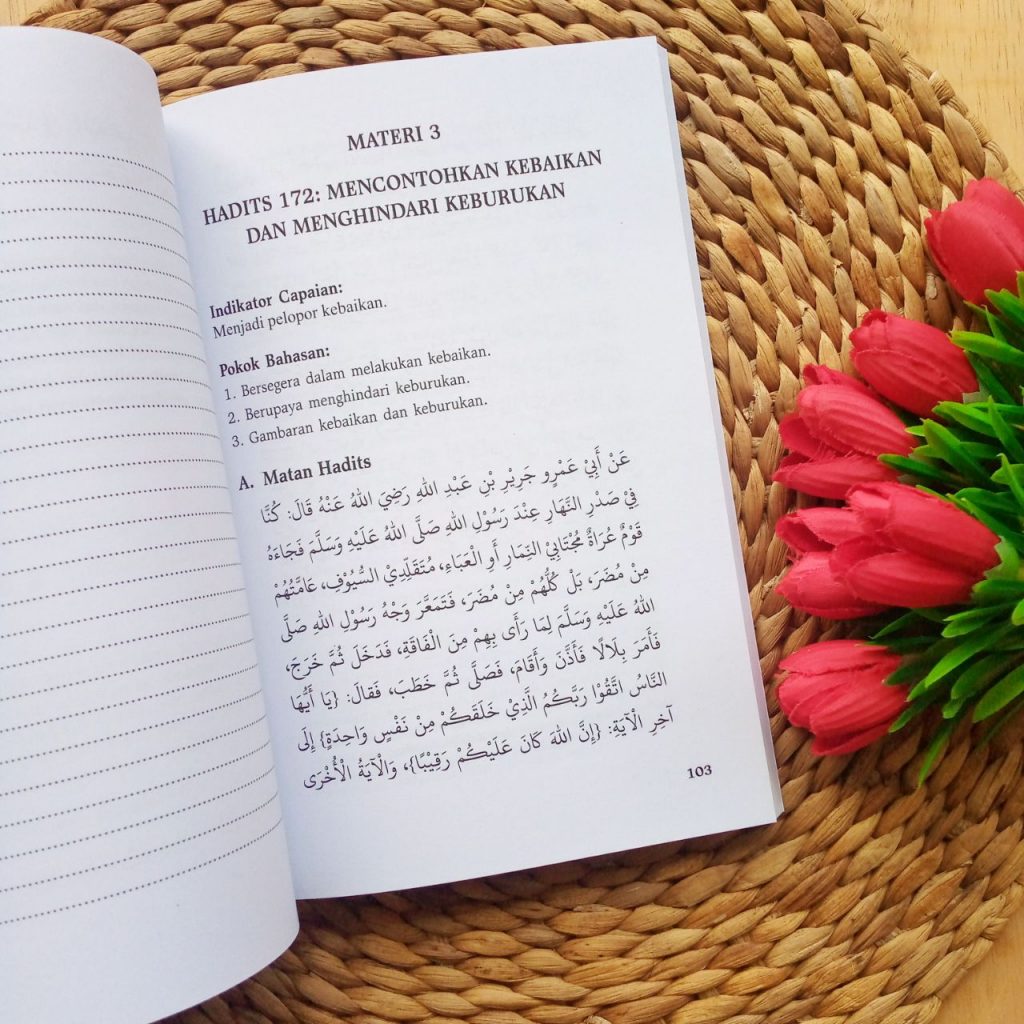 MATERI 3
HADITS 172: MENCONTOHKAN KEBAIKAN
DAN MENGHINDARI KEBURUKAN
Indikator Capaian:
Menjadi pelopor kebaikan.
Pokok Bahasan:
1. Bersegera dalam melakukan kebaikan.
2. Berupaya menghindari keburukan.
3. Gambaran kebaikan dan keburukan.
A. Matan Hadits
عَنْ أَبِيْ عَمْرٍو جَرِيْرِ بْنِ عَبْدِ اللهِ رَضِيَ اللهُ عَنْهُ قَالَ: كُنَّا
فِيْ صَدْرِ النَّهَارِ عِنْدَ رَسُوْلِ اللهِ صَلَّى اللهُ عَلَيْهِ وَسَلَّمَ فَجَاءَهُ
قَوْمٌ عُرَاةٌ مُجْتَابِيْ النِّمَارِ أَوِ الْعَبَاءِ، مُتَقَلِّدِيْ السُّيُوْفِ، عَامَّتُهُمْ
مِنْ مُضَرَ، بَلْ كُلُّهُمْ مِنْ مُضَرَ، فَتَمَعَّرَ وَجْهُ رَسُوْلِ اللهِ صَلَّى
اللهُ عَلَيْهِ وَسَلَّمَ لِمَا رَأَى بِهِمْ مِنَ الْفَاقَةِ، فَدَخَلَ ثُمَّ خَرَجَ،
فَأَمَرَ بِلَالًا فَأَذَّنَ وَأَقَامَ، فَصَلَّى ثُمَّ خَطَبَ، فَقَالَ: {يَا أَيُّهَا
النَّاسُ اتَّقُوْا رَبَّكُمُ الَّذِيْ خَلَقَكُمْ مِنْ نَفْسٍ وَاحِدَةٍ} إِلَى
آخِرِ الْآيَةِ: {إِنَّ اللهَ كَانَ عَلَيْكُمْ رَقِيْبًا}، وَالْآيَةُ الْأُخْرَى
103